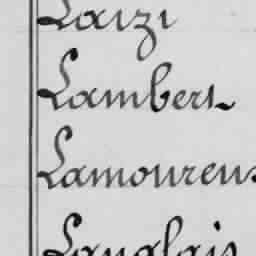 Laizi
Lambert
Lamoureux
Langlais